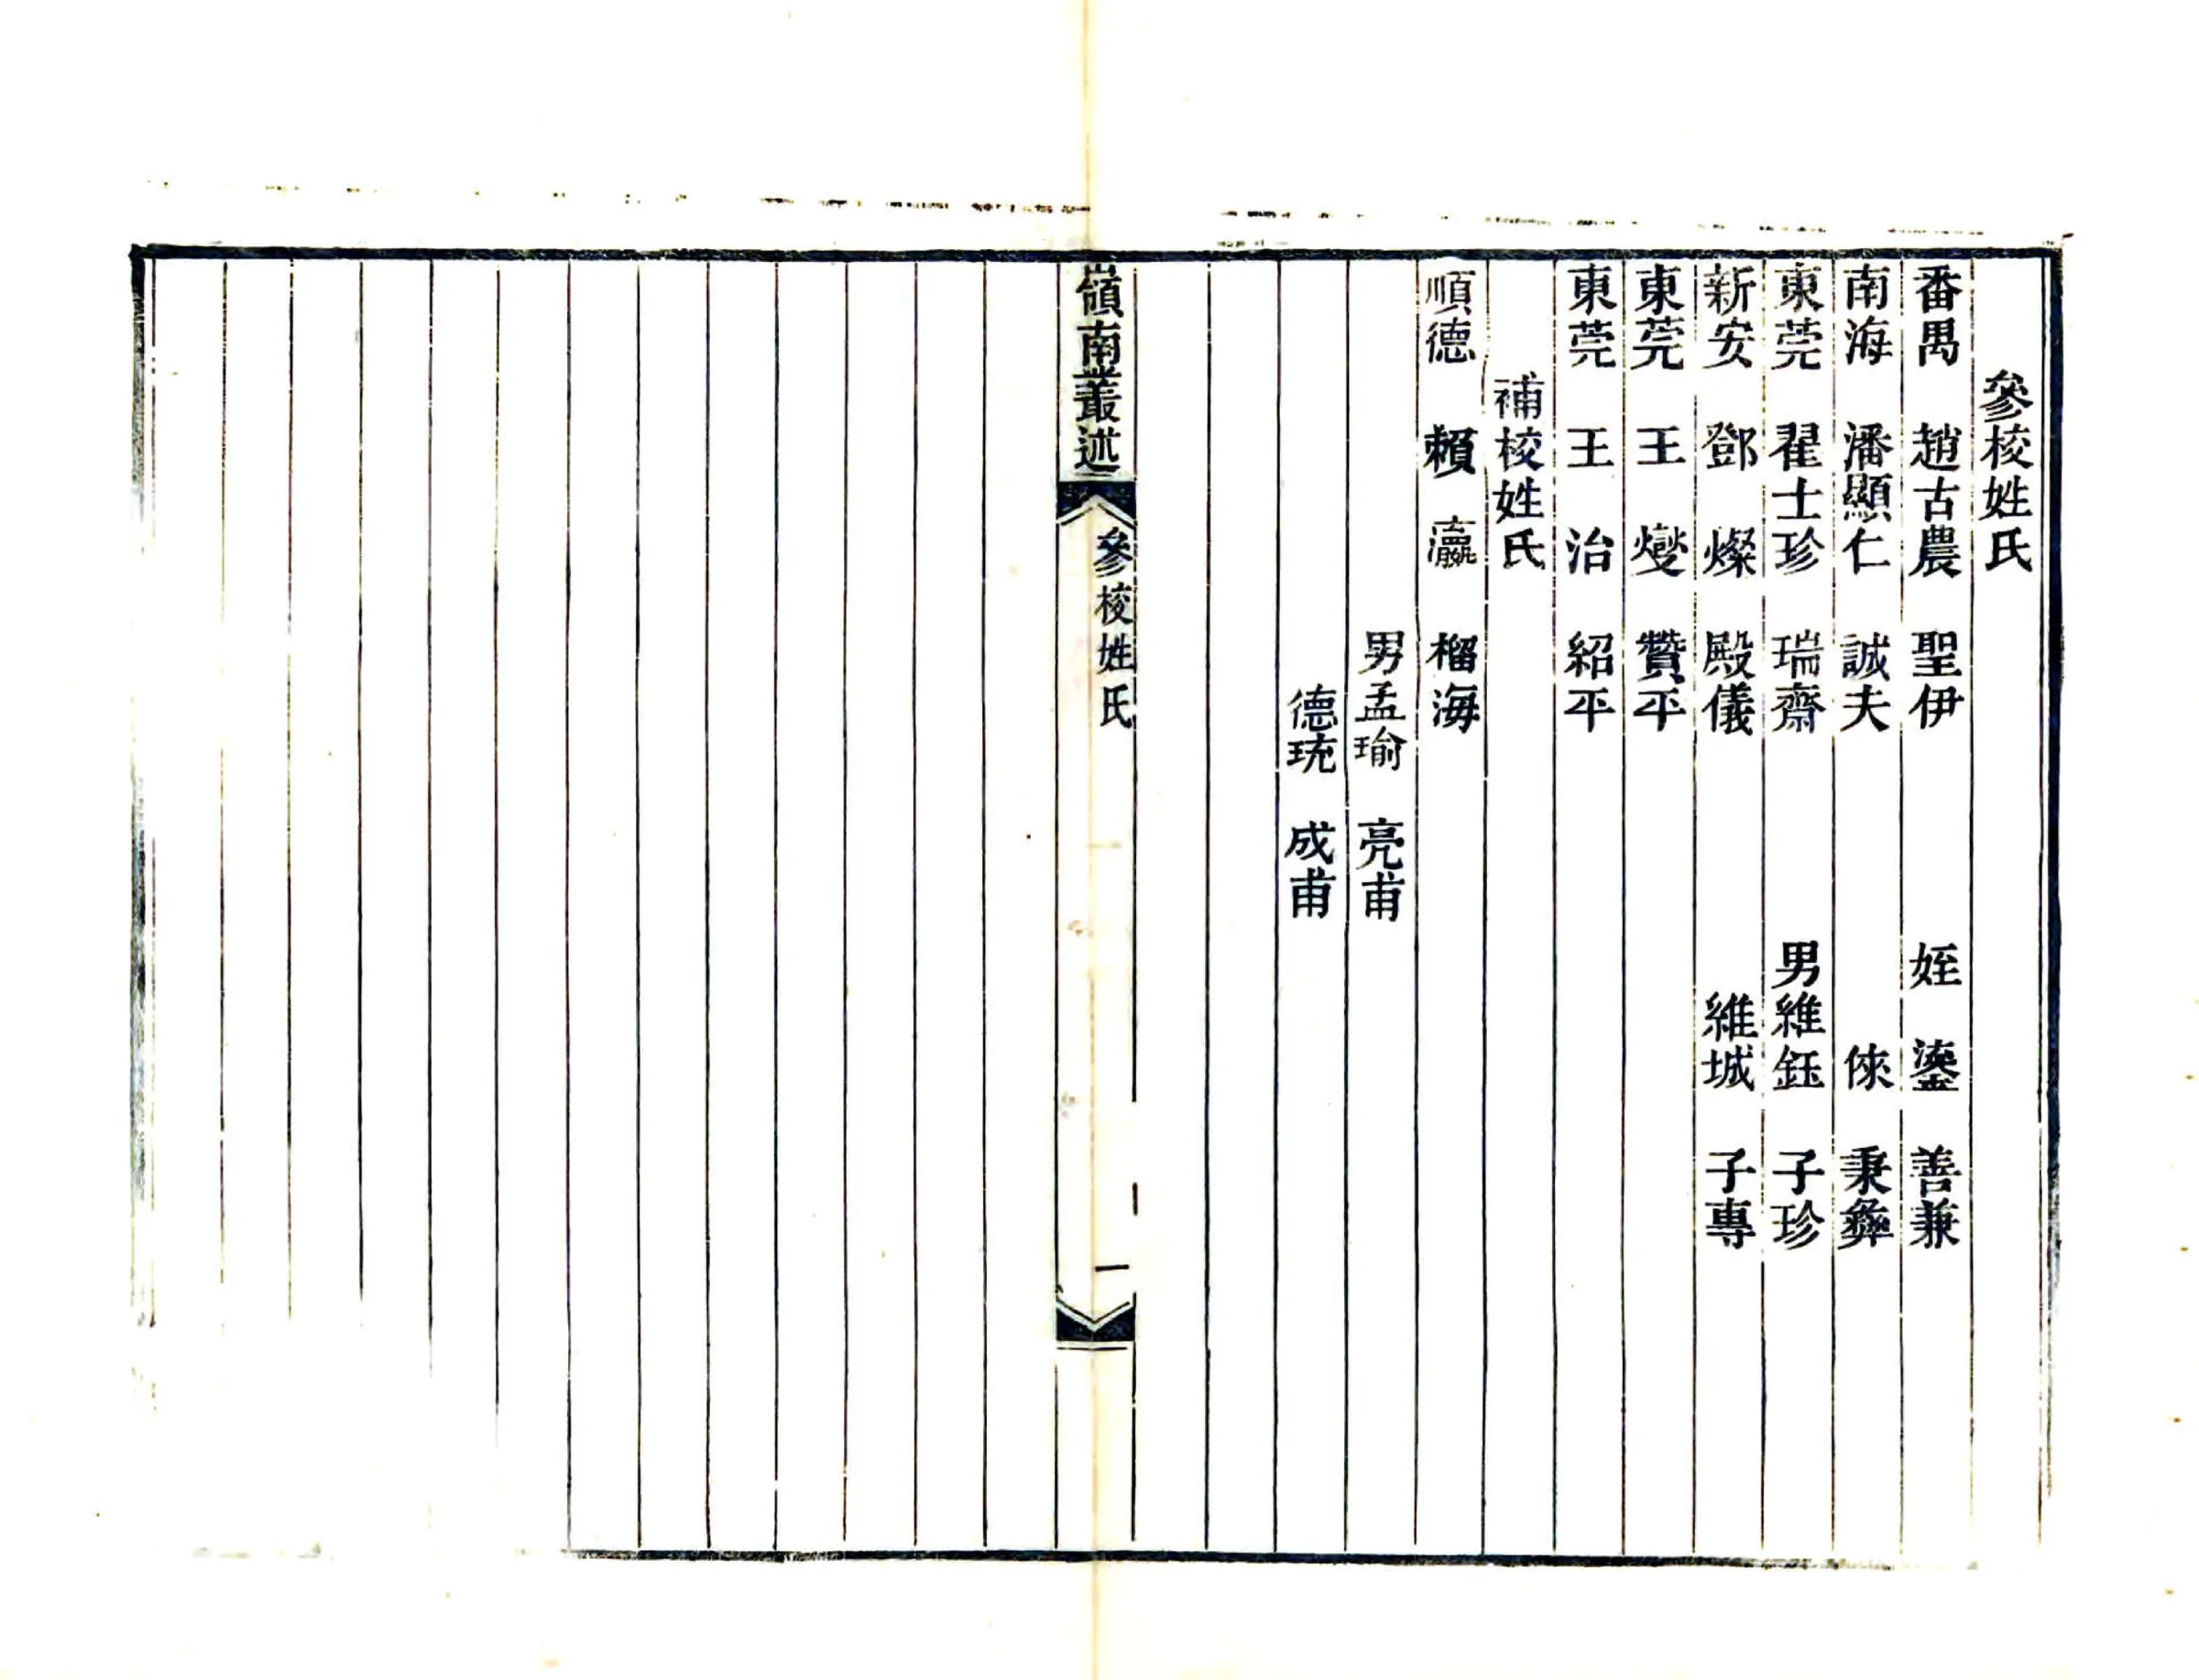 參校姓氏
番禺　趙古農　聖伊　　　　姪　鎏　善兼
南海　潘顯仁　誠夫　　　　　　倈　秉彝
東莞　翟士珍　瑞齋　　　　男維鈺　子珍
新安　鄧　燦　殿儀　　　　　維城　子專
東莞　王　燮　贊平
東莞　王　治　紹平
補校姓氏
順德　賴　瀛　榴海
男孟瑜　亮甫
德珫　成甫
嶺南叢述　參校姓氏　一